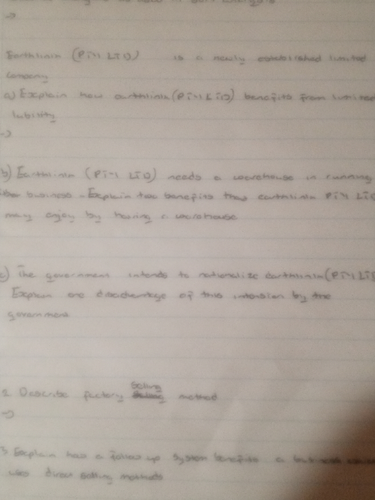 ->
Earthlinia (Pty) LtD) is a newly established limited
company
a) Explain how earthlinia (Pty) LtD) benefits from limited
liability
->
b) Earthlinia (Pty LtD) needs a warehouse in running
business. Explain two benefits that earthlinia Pty LtD
may enjoy by having a warehouse
c) The government intends to nationalize earthlinia (Pty LtD
Explain one disadvantage of this intension by the
government
2. Describe factory selling method
->
3 Explain how a follow up system benefits a business
uses direct selling methods